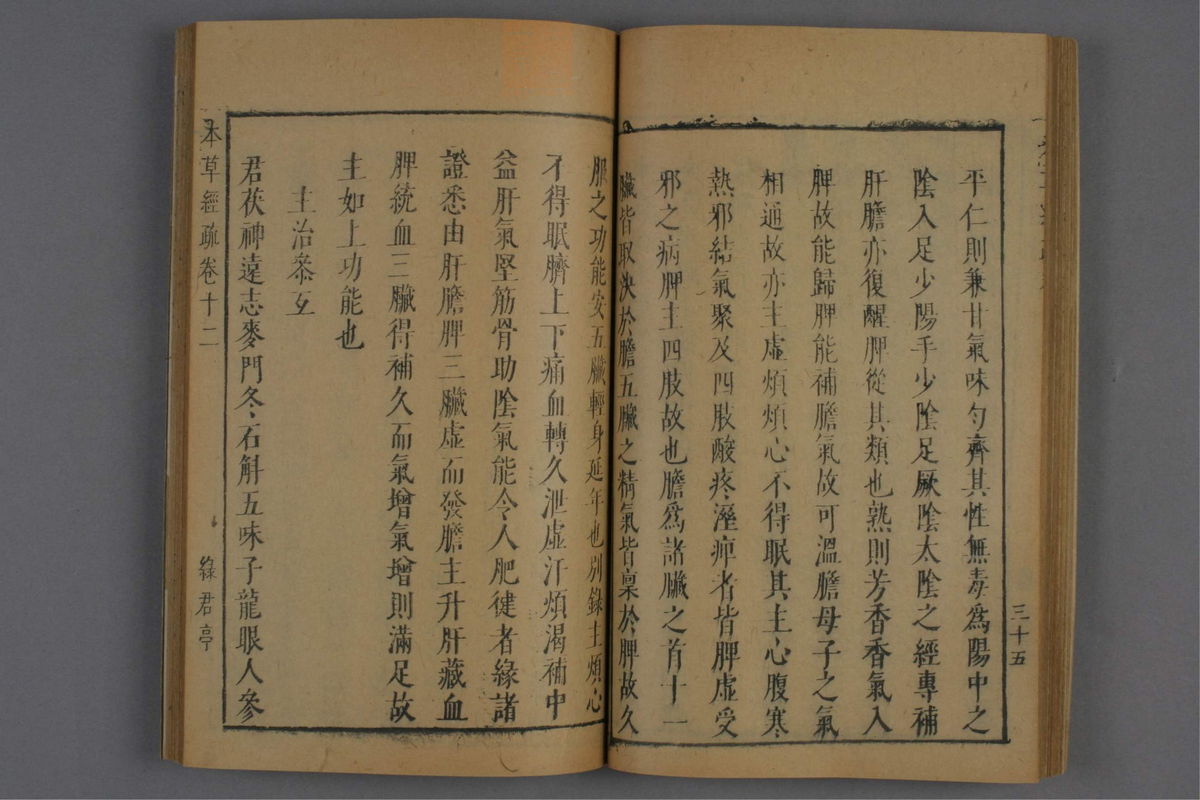 三十五
平仁則兼甘氣味匀齊其性無毒爲陽中之
陰入足少陽手少陰足厥陰太陰之經專補
肝膽亦復醒脾從其類也熟則芳香香氣入
脾故能歸脾能補膽氣故可溫膽母子之氣
相通故亦主虛煩煩心不得眠其主心腹寒
熱邪結氣聚及四肢酸疼溼痺者皆脾虛受
邪之病脾主四肢故也膽爲諸臟之首十一
臟皆取決於膽五臟之精氣皆稟於脾故久
服之功能安五臟輕身延年也别錄主煩心
不得眠臍上下痛血轉久泄虛汗煩渴補中
益肝氣堅筋骨助陰氣能令人肥健者緣諸
證悉由肝膽脾三臟虛而發膽主升肝藏血
脾統血三臟得補久而氣增氣增則滿足故
主如上功能也
主治叅互
君茯神遠志麥門冬石斛五味子龍眼人參
本草經疏卷十二
綠君亭